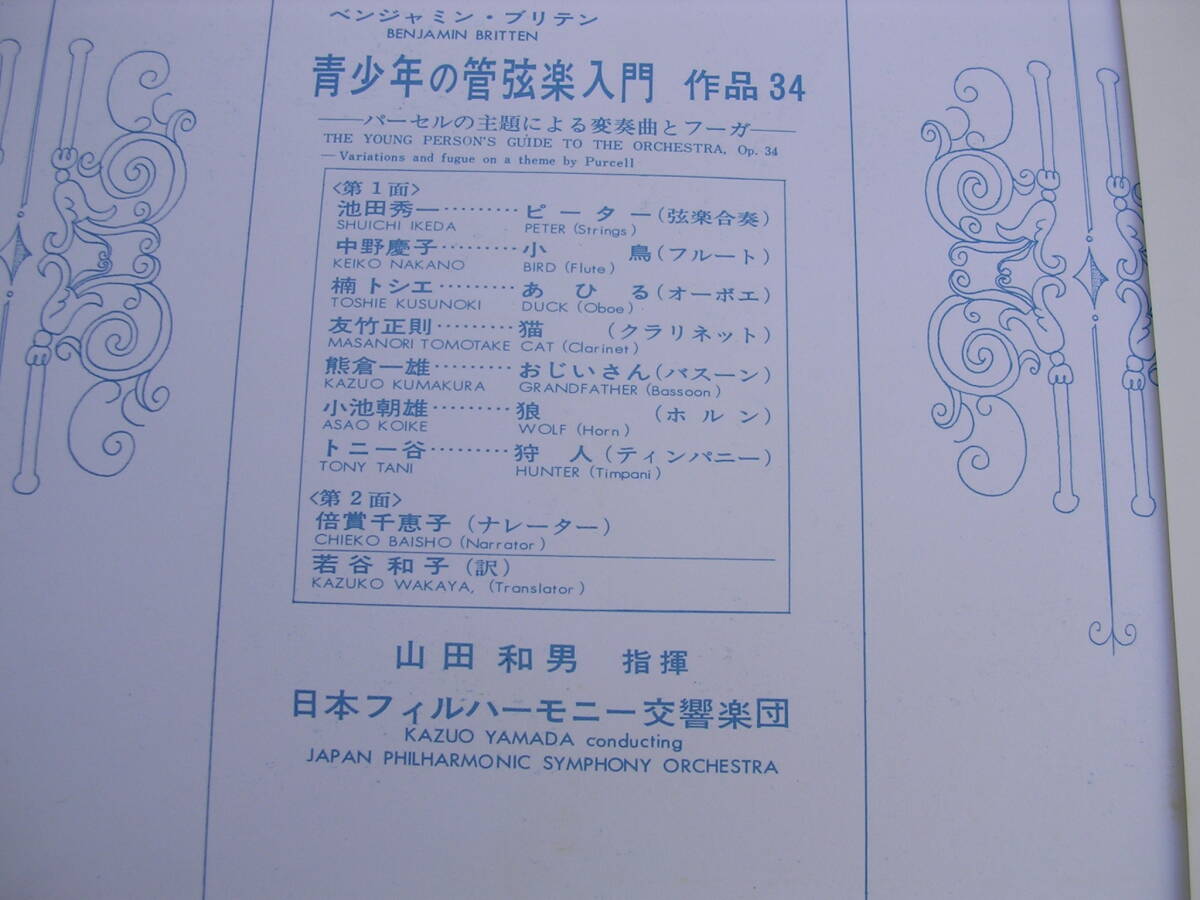 ベンジャミン・ブリテン
BENJAMIN BRITTEN
青少年の管弦楽入門 作品34
——パーセルの主題による変奏曲とフーガ——
THE YOUNG PERSON'S GUIDE TO THE ORCHESTRA, Op. 34
—Variations and fugue on a theme by Purcell
〈第1面〉
池田秀一………ピーター(弦楽合奏)
SHUICHI IKEDA PETER (Strings)
中野慶子………小鳥(フルート)
KEIKO NAKANO BIRD (Flute)
楠トシエ………あひる(オーボエ)
TOSHIE KUSUNOKI DUCK (Oboe)
友竹正則………猫(クラリネット)
MASANORI TOMOTAKE CAT (Clarinet)
熊倉一雄………おじいさん(バスーン)
KAZUO KUMAKURA GRANDFATHER (Bassoon)
小池朝雄………狼(ホルン)
ASAO KOIKE WOLF (Horn)
トニー谷………狩人(ティンパニー)
TONY TANI HUNTER (Timpani)
〈第2面〉
倍賞千恵子(ナレーター)
CHIEKO BAISHO (Narrator)
若谷和子(訳)
KAZUKO WAKAYA, (Translator)
山田和男 指揮
日本フィルハーモニー交響楽団
KAZUO YAMADA conducting
JAPAN PHILHARMONIC SYMPHONY ORCHESTRA